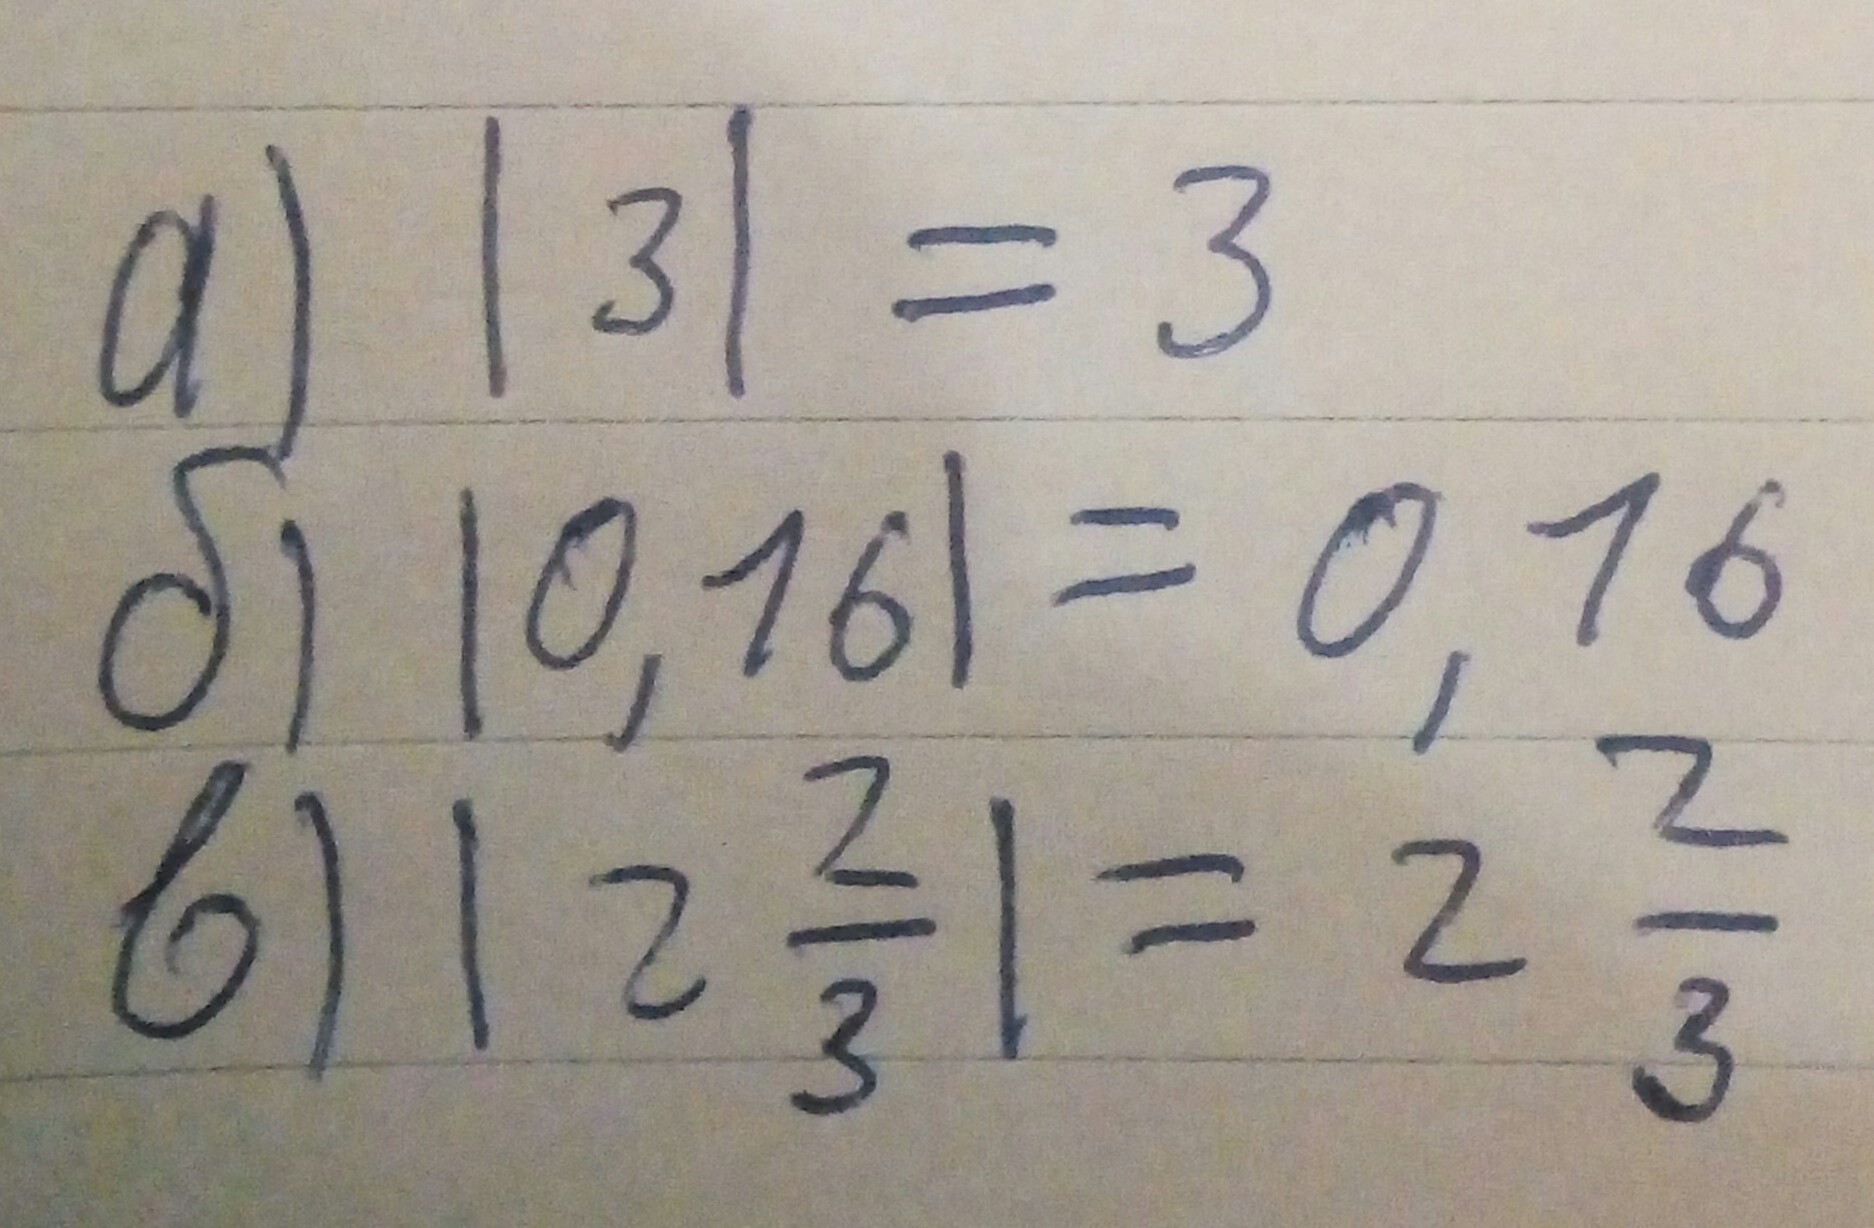 а) |3| = 3
б) |0,16| = 0,16
в) |2 2/3| = 2 2/3